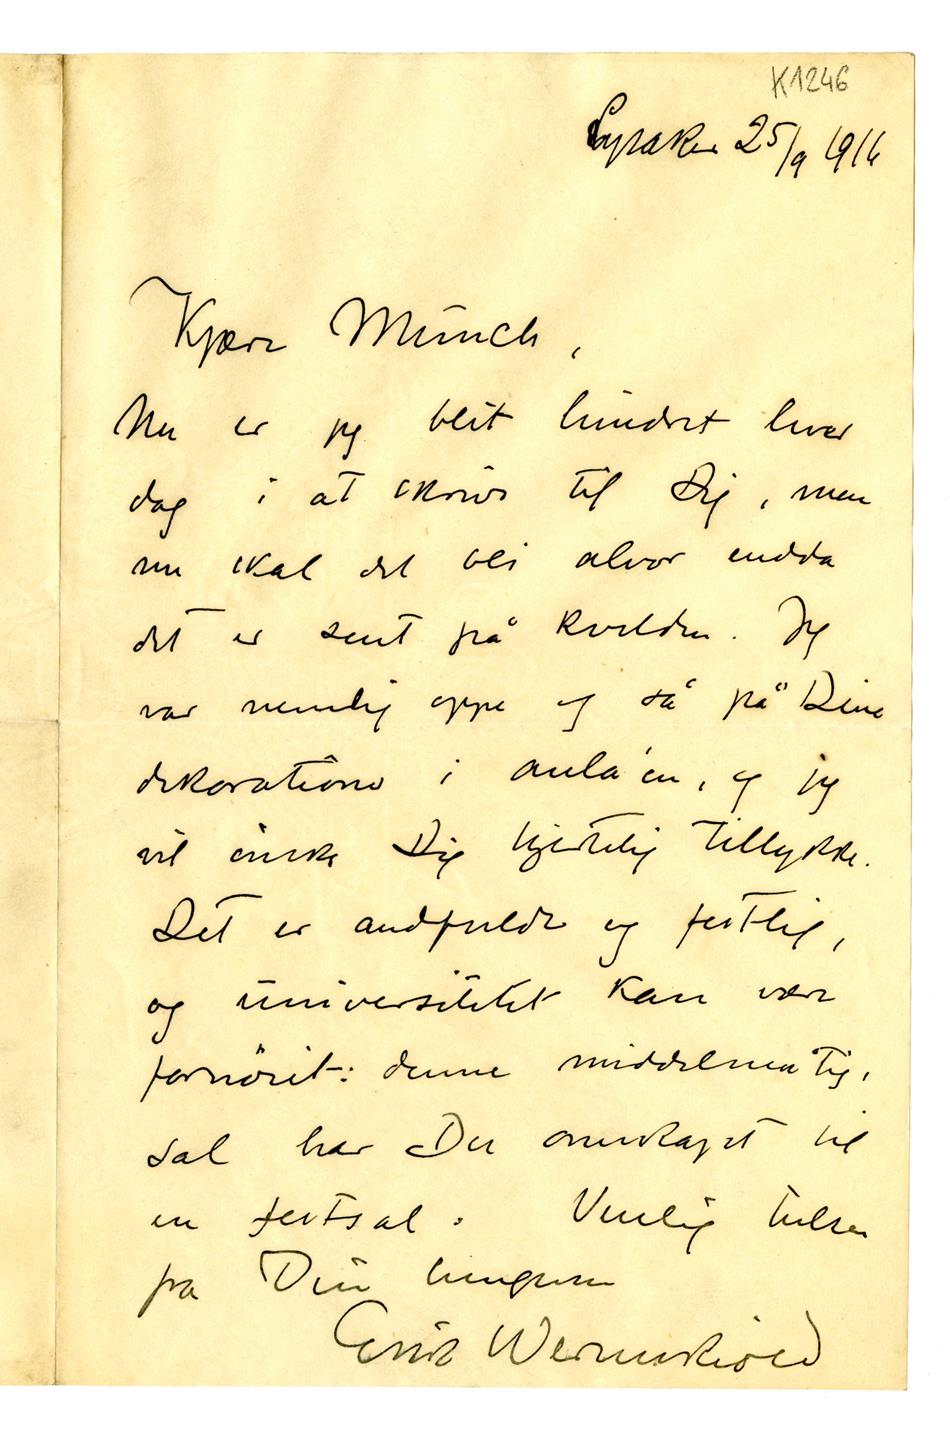 K1246
Lysaker 25/9 1916
Kjære Munch,
Nu er jeg blit hindret hver
dag i at skrive til Dig, men
nu skal det bli alvor endda
det er sent på kvelden. Jeg
var nemlig oppe og så på Dine
dekorationer i aula'en, og jeg
vil ønske Dig hjertelig tillykke.
Det er åndfuldt og festlig,
og universitetet kan være
fornøiet: denne middelmåtige,
sal har Du omskapt til
en festsal. Venlig hilsen
fra Din hengivne
Erik Werenskiold